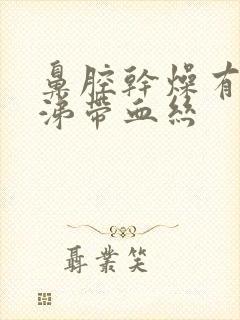 鼻腔幹燥有
涕帶血絲
聶業笑